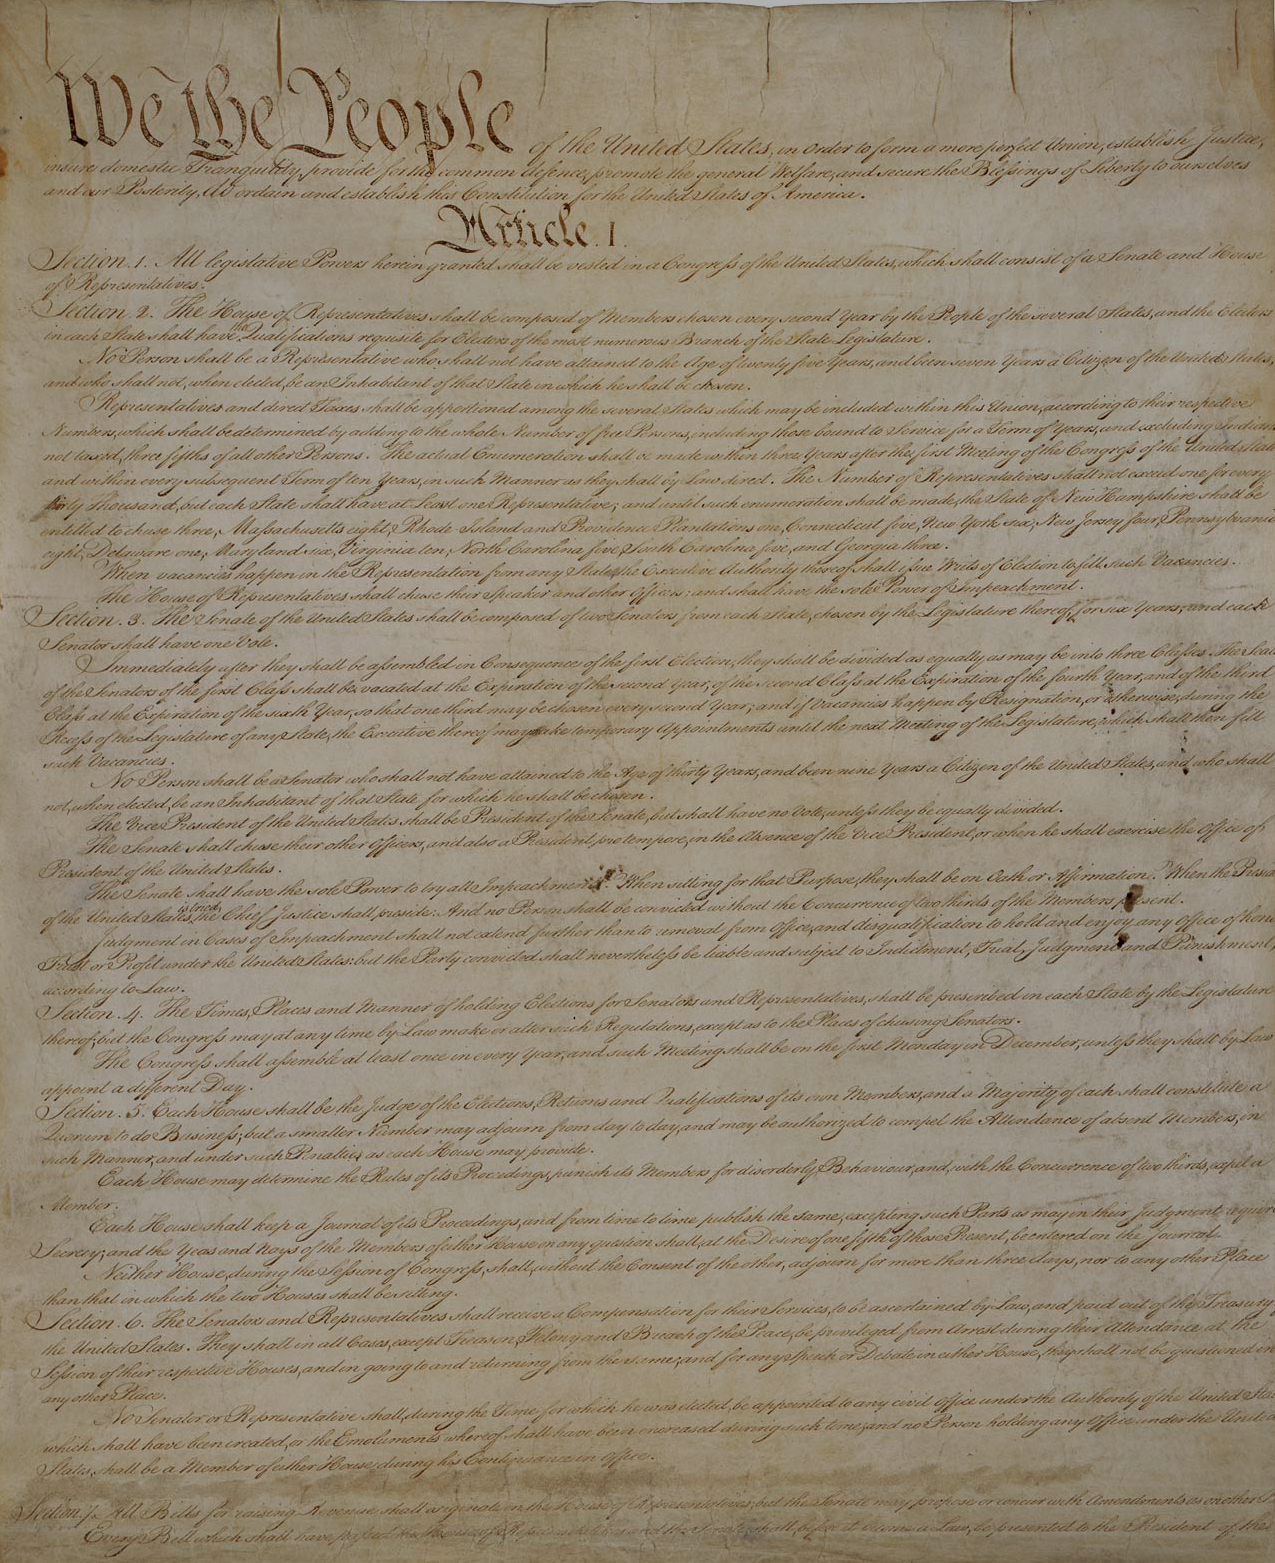 We the People of the United States, in Order to form a more perfect Union, establish Justice,
insure domestic Tranquility, provide for the common defence, promote the general Welfare, and secure the Blessings of Liberty to ourselves
and our Posterity, do ordain and establish this Constitution for the United States of America.
Article. I.
Section. 1. All legislative Powers herein granted shall be vested in a Congress of the United States, which shall consist of a Senate and House
of Representatives.
Section. 2. The House of Representatives shall be composed of Members chosen every second Year by the People of the several States, and the Electors
in each State shall have the Qualifications requisite for Electors of the most numerous Branch of the State Legislature.
No Person shall be a Representative who shall not have attained to the Age of twenty five Years, and been seven Years a Citizen of the United States,
and who shall not, when elected, be an Inhabitant of that State in which he shall be chosen.
Representatives and direct Taxes shall be apportioned among the several States which may be included within this Union, according to their respective
Numbers, which shall be determined by adding to the whole Number of free Persons, including those bound to Service for a Term of Years, and excluding Indians
not taxed, three fifths of all other Persons. The actual Enumeration shall be made within three Years after the first Meeting of the Congress of the United States,
and within every subsequent Term of ten Years, in such Manner as they shall by Law direct. The Number of Representatives shall not exceed one for every
thirty Thousand, but each State shall have at Least one Representative; and until such enumeration shall be made, the State of New Hampshire shall be
entitled to chuse three, Massachusetts eight, Rhode Island and Providence Plantations one, Connecticut five, New York six, New Jersey four, Pennsylvania
eight, Delaware one, Maryland six, Virginia ten, North Carolina five, South Carolina five, and Georgia three.
When vacancies happen in the Representation from any State, the Executive Authority thereof shall issue Writs of Election to fill such Vacancies.
The House of Representatives shall chuse their Speaker and other Officers; and shall have the sole Power of Impeachment.
Section. 3. The Senate of the United States shall be composed of two Senators from each State, chosen by the Legislature thereof, for six Years; and each
Senator shall have one Vote.
Immediately after they shall be assembled in Consequence of the first Election, they shall be divided as equally as may be into three Classes. The Seats
of the Senators of the first Class shall be vacated at the Expiration of the second Year, of the second Class at the Expiration of the fourth Year, and of the third
Class at the Expiration of the sixth Year, so that one third may be chosen every second Year; and if Vacancies happen by Resignation, or otherwise, during the
Recess of the Legislature of any State, the Executive thereof may make temporary Appointments until the next Meeting of the Legislature, which shall then fill
such Vacancies.
No Person shall be a Senator who shall not have attained to the Age of thirty Years, and been nine Years a Citizen of the United States, and who shall
not, when elected, be an Inhabitant of that State for which he shall be chosen.
The Vice President of the United States shall be President of the Senate, but shall have no Vote, unless they be equally divided.
The Senate shall chuse their other Officers, and also a President pro tempore, in the Absence of the Vice President, or when he shall exercise the Office of
President of the United States.
The Senate shall have the sole Power to try all Impeachments. When sitting for that Purpose, they shall be on Oath or Affirmation. When the President
of the United States is tried, the Chief Justice shall preside: And no Person shall be convicted without the Concurrence of two thirds of the Members present.
Judgment in Cases of Impeachment shall not extend further than to removal from Office, and disqualification to hold and enjoy any Office of honor,
Trust or Profit under the United States: but the Party convicted shall nevertheless be liable and subject to Indictment, Trial, Judgment and Punishment,
according to Law.
Section. 4. The Times, Places and Manner of holding Elections for Senators and Representatives, shall be prescribed in each State by the Legislature
thereof; but the Congress may at any time by Law make or alter such Regulations, except as to the Places of chusing Senators.
The Congress shall assemble at least once in every Year, and such Meeting shall be on the first Monday in December, unless they shall by Law
appoint a different Day.
Section. 5. Each House shall be the Judge of the Elections, Returns and Qualifications of its own Members, and a Majority of each shall constitute a
Quorum to do Business; but a smaller Number may adjourn from day to day, and may be authorized to compel the Attendance of absent Members, in
such Manner, and under such Penalties as each House may provide.
Each House may determine the Rules of its Proceedings, punish its Members for disorderly Behaviour, and, with the Concurrence of two thirds, expel a
Member.
Each House shall keep a Journal of its Proceedings, and from time to time publish the same, excepting such Parts as may in their Judgment require
Secrecy; and the Yeas and Nays of the Members of either House on any question shall, at the Desire of one fifth of those Present, be entered on the Journal.
Neither House, during the Session of Congress, shall, without the Consent of the other, adjourn for more than three days, nor to any other Place
than that in which the two Houses shall be sitting.
Section. 6. The Senators and Representatives shall receive a Compensation for their Services, to be ascertained by Law, and paid out of the Treasury
the United States. They shall in all Cases, except Treason, Felony and Breach of the Peace, be privileged from Arrest during their Attendance at the
Session of their respective Houses, and in going to and returning from the same; and for any Speech or Debate in either House, they shall not be questioned in
any other Place.
No Senator or Representative shall, during the Time for which he was elected, be appointed to any civil Office under the Authority of the United States,
which shall have been created, or the Emoluments whereof shall have been encreased during such time; and no Person holding any Office under the United
States, shall be a Member of either House during his Continuance in Office.
Section. 7. All Bills for raising Revenue shall originate in the House of Representatives; but the Senate may propose or concur with Amendments as on other
Every Bill which shall have passed the House of Representatives and the Senate, shall, before it become a Law, be presented to the President of the